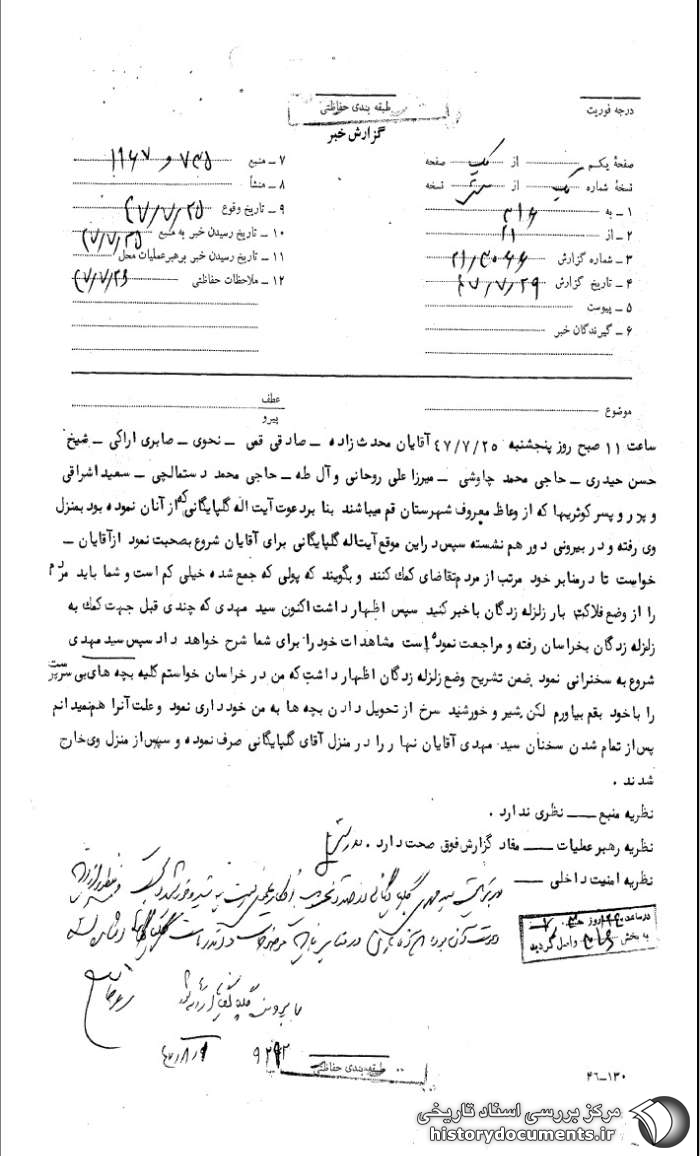 درجه فوریت
طبقه بندی حفاظتی
گزارش خبر
صفحهٔ یکم از یک صفحه
نسخهٔ شماره از نسخه
۱ ـ به ۳۱۶
۲ ـ از ۲۱
۳ ـ شماره گزارش
۴ ـ تاریخ گزارش ۴۷/۷/۲۹
۵ ـ پیوست
۶ ـ گیرندگان خبر
۷ ـ منبع ۷۴۵ و ۱۹۶۷
۸ ـ منشأ
۹ ـ تاریخ وقوع ۴۷/۷/۲۵
۱۰ ـ تاریخ رسیدن خبر به منبع ۴۷/۷/۲۵
۱۱ ـ تاریخ رسیدن خبر برهبر عملیات محل
۱۲ ـ ملاحظات حفاظتی ۴۷/۷/۲۶
موضوع
عطف
پیرو
ساعت ۱۱ صبح روز پنجشنبه ۴۷/۷/۲۵ آقایان محدث زاده ـ صادقی قمی ـ نحوی ـ صابری اراکی ـ شیخ
حسن حیدری ـ حاجی محمد چاوشی ـ میرزا علی روحانی و آل طه ـ حاجی محمد دستمالچی ـ سعید اشراقی
و پدر و پسر کوثریها که از وعاظ معروف شهرستان قم میباشند بنا بر دعوت آیت اله گلپایگانی که از آنان نموده بود بمنزل
وی رفته و در بیرونی دور هم نشسته سپس در این موقع آیت اله گلپایگانی برای آقایان شروع بصحبت نمود از آقایان ـ
خواست تا در منابر خود مرتب از مردم تقاضای کمك کنند و بگویند که پولی که جمع شده خیلی کم است و شما باید مردم
را از وضع فلاکت بار زلزله زدگان باخبر کنید سپس اظهار داشت اکنون سید مهدی که چندی قبل جهت کمك به
زلزله زدگان بخراسان رفته و مراجعت نموده است مشاهدات خود را برای شما شرح خواهد داد سپس سید مهدی
شروع به سخنرانی نمود ضمن تشریح وضع زلزله زدگان اظهار داشت که من در خراسان خواستم کلیه بچه های بی سرپرست
را با خود بقم بیاورم لکن شیر و خورشید سرخ از تحویل دادن بچه ها به من خودداری نمود و علت آنرا هم نمیدانم
پس از تمام شدن سخنان سید مهدی آقایان نهار را در منزل آقای گلپایگانی صرف نموده و سپس از منزل وی خارج
شدند .
نظریه منبع ــ نظری ندارد .
نظریه رهبر عملیات ــ مفاد گزارش فوق صحت دارد .
نظریه امنیت داخلی ــ
در ساعت روز
به بخش واصل گردید
۹۲۹۲
طبقه بندی حفاظتی
۴۶-۱۳۰
مرکز بررسی اسناد تاریخی
historydocuments.ir